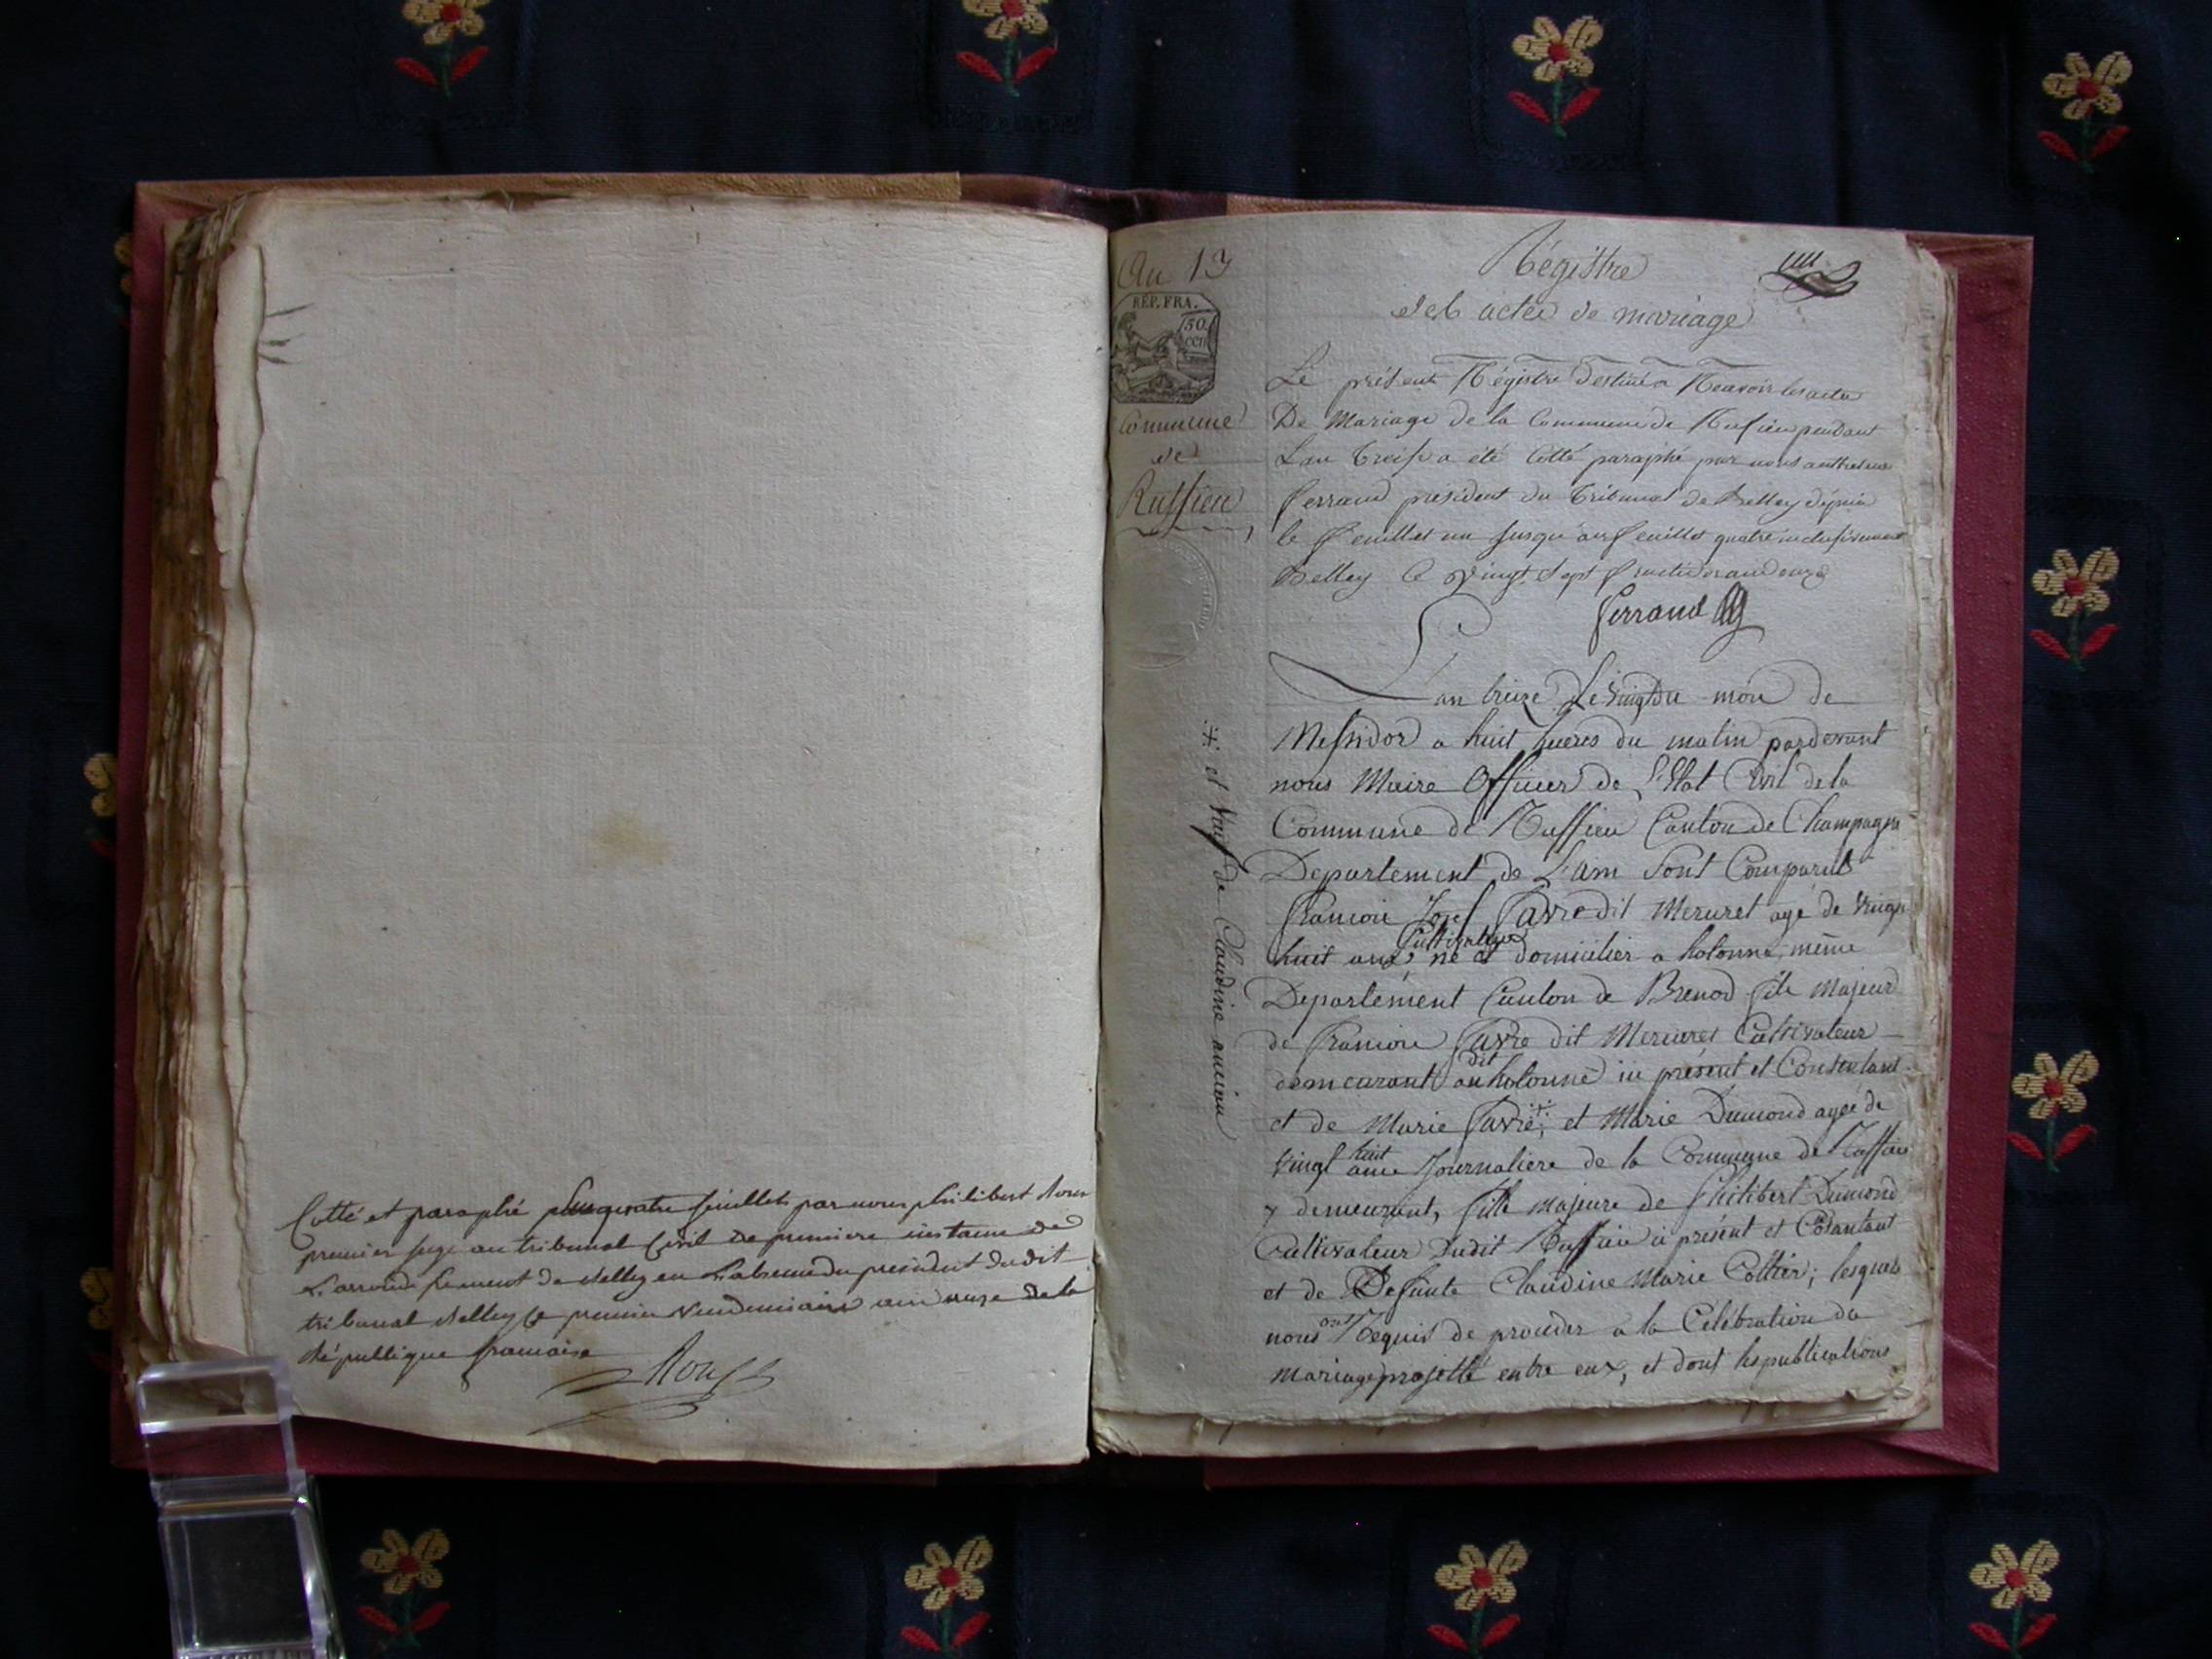 Cotté et paraphé sur quatre feuillets par nous philibert Roux
premier juge au tribunal Civil de premiere instance de
L'arrondissement de Belley en L'absence du president dudit
tribunal Belley le premier Vendemiaire an onze de la
République francaise
Roux
An 13
RÉP. FRA.
50
CEN
Commune
de
Ruffieu
Régistre
des actes de mariage
Le présent Régistre destiné a Recevoir les actes
De Mariage de la Commune de Rufieu pendant
L'an treise a été Cotté paraphé par nous
ferrand président du tribunal de Belley dépuis
le feuillet un jusqu'au feuillet quatre inclusivement
Belley le vingt sept fructidor an douze
ferrand
L'an treize Le vingt du mois de
Messidor a huit heures du matin pardevant
nous Maire Officier de L'Etat Civil de la
Commune de Ruffieu Canton de Champagne
Departement de L'ain Sont Comparus
francois Josef favre dit Mercuret agé de vingt
Cultivateur
huit ans, né et domicilier a hotonne, même
Departement Canton de Brenod fils Majeur
de francois favre dit Mercuret Cultivateur
demeurant au dit hotonne ici présent et Consentant
et de Marie favre ; et Marie Dumond agée de
vingt huit ans Journaliere de la Commune de Ruffieu
y demeurant, fille majeure de philibert Dumond
Cultivateur dudit Ruffieu ici présent et Consantant
et de Defunte Claudine Marie Cottier ; lesquels
nous ont Requis de proceder a la Celébration du
mariage projetté entre eux, et dont les publications
et Vay de Claudine ancian